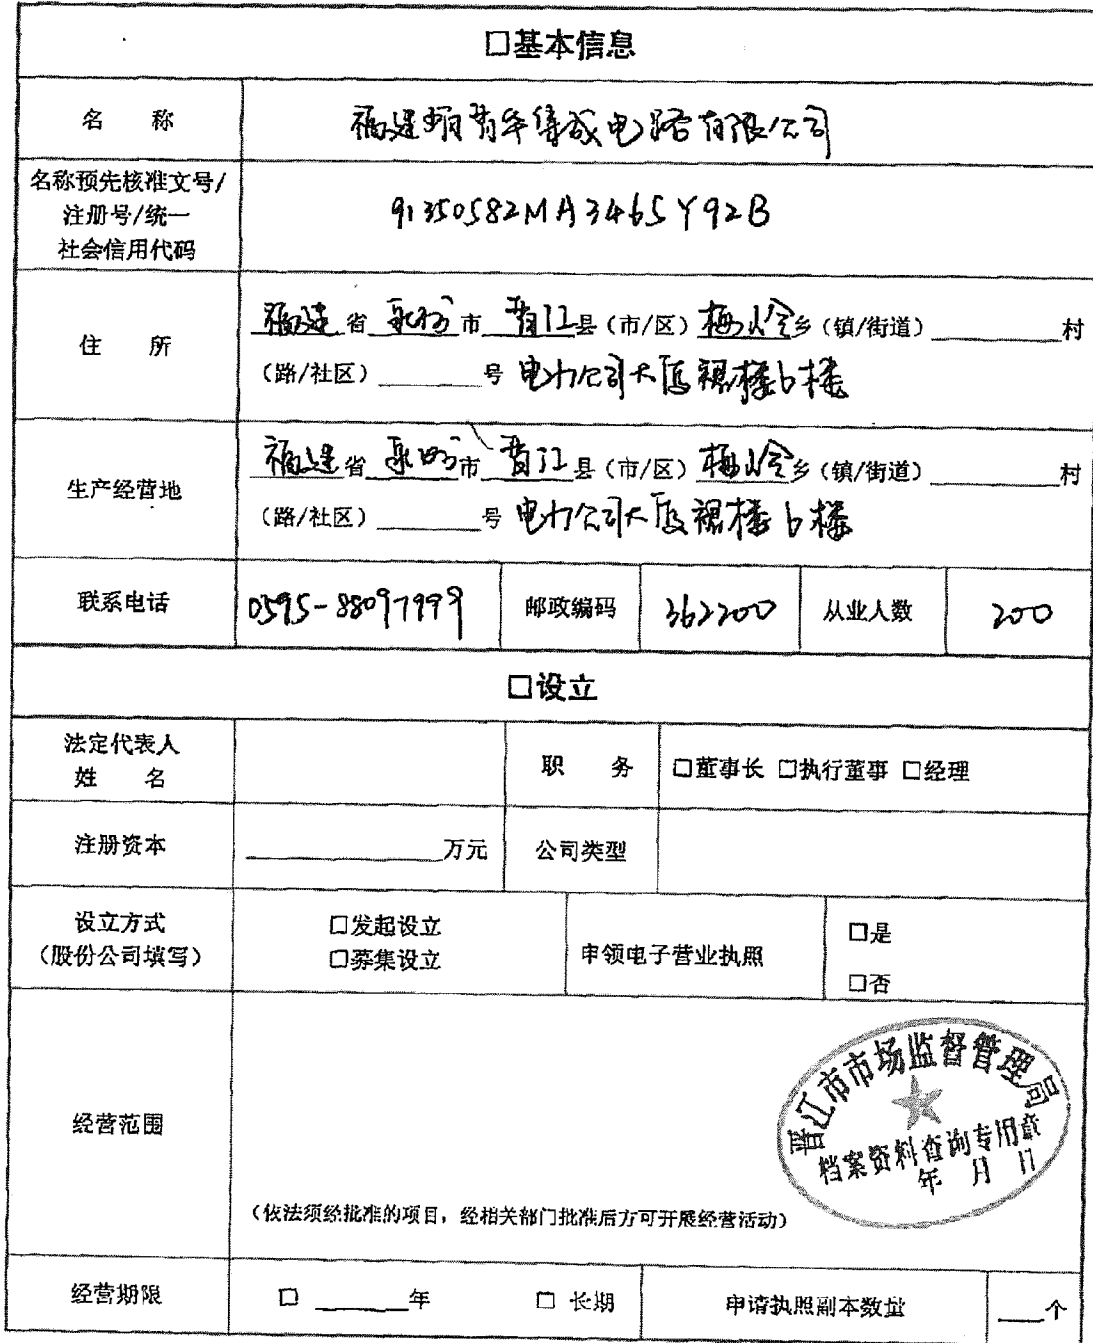 □基本信息
名 称 福建省晋华集成电路有限公司
名称预先核准文号/
注册号/统一
社会信用代码
91350582MA3465Y92B
住 所
福建省 泉州市 晋江县（市/区）梅岭乡（镇/街道）________村
（路/社区）______号 电力公司大厦裙楼6楼
生产经营地
福建省 泉州市 晋江县（市/区）梅岭乡（镇/街道）________村
（路/社区）______号 电力公司大厦裙楼6楼
联系电话 0595-88097999 邮政编码 362200 从业人数 200
□设立
法定代表人
姓 名
职 务 □董事长 □执行董事 □经理
注册资本 ________万元 公司类型
设立方式
（股份公司填写）
□发起设立
□募集设立
申领电子营业执照
□是
□否
经营范围
晋江市市场监督管理局
档案资料查询专用章
年 月 日
（依法须经批准的项目，经相关部门批准后方可开展经营活动）
经营期限 □ ______年 □ 长期 申请执照副本数量 ___个